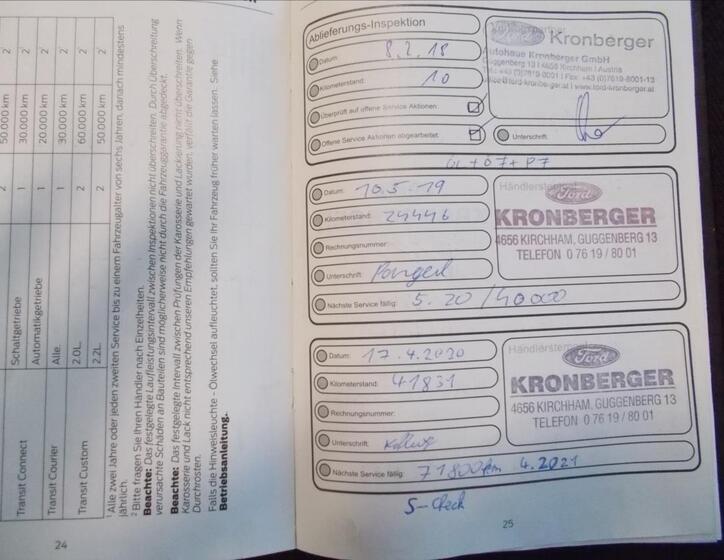 50.000 km 2
30.000 km 2
20.000 km 2
30.000 km 2
60.000 km 2
50.000 km 2
2
1
1
1
2
2
Schaltgetriebe
Automatikgetriebe
Alle.
2.0L.
2.2L.
Transit Connect
Transit Courier
Transit Custom
1 Alle zwei Jahre oder jeden zweiten Service bis zu einem Fahrzeugalter von sechs Jahren, danach mindestens
jährlich.
2 Bitte fragen Sie Ihren Händler nach Einzelheiten.
Beachte: Das festgelegte Laufleistungsintervall zwischen Inspektionen nicht überschreiten. Durch Überschreitung
verursachte Schäden an Bauteilen sind möglicherweise nicht durch die Fahrzeuggarantie abgedeckt.
Beachte: Das festgelegte Intervall zwischen Prüfungen der Karosserie und Lackierung nicht überschreiten. Wenn
Karosserie und Lack nicht entsprechend unseren Empfehlungen gewartet wurden, verfällt die Garantie gegen
Durchrosten.
Falls die Hinweisleuchte - Ölwechsel aufleuchtet, sollten Sie Ihr Fahrzeug früher warten lassen. Siehe
Betriebsanleitung.
24
Ablieferungs-Inspektion
Datum: 8.2.18
Kilometerstand: 10
Überprüft auf offene Service Aktionen:
Offene Service Aktionen abgearbeitet:
Ford Kronberger
Autohaus Kronberger GmbH
Guggenberg 13 I 4656 Kirchham I Austria
Unterschrift:
Datum: 10.5.19
Kilometerstand: 24446
Rechnungsnummer:
Unterschrift:
Nächste Service fällig: 5.20 / 40000
Ford
KRONBERGER
4656 KIRCHHAM, GUGGENBERG 13
TELEFON 0 76 19 / 80 01
Datum: 17.4.2020
Kilometerstand: 41831
Rechnungsnummer:
Unterschrift:
Nächste Service fällig: 71800km 4.2021
Ford
KRONBERGER
4656 KIRCHHAM, GUGGENBERG 13
TELEFON 0 76 19 / 80 01
S-Check
25